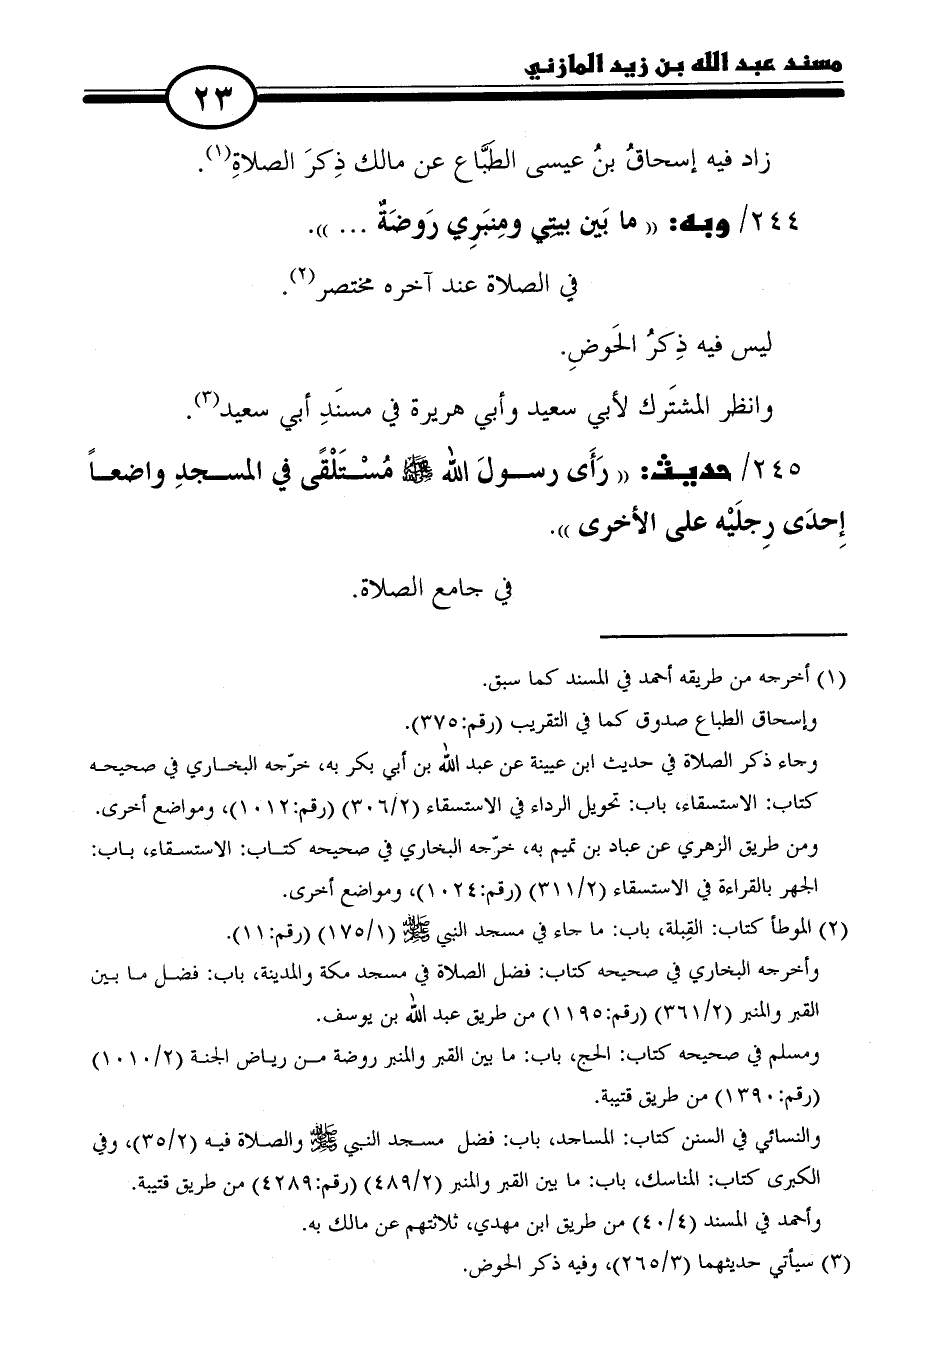 مسند عبد الله بن زيد المازني
٢٣
زاد فيه إسحاقُ بنُ عيسى الطَبَّاع عن مالك ذِكرَ الصلاةِ(١).
٢٤٤/ وبه: « ما بَين بيتِي ومِنبَرِي رَوضَةٌ ... ».
في الصلاة عند آخره مختصر(٢).
ليس فيه ذِكرُ الحَوضِ.
وانظر المشتَرك لأبي سعيد وأبي هريرة في مسنَدِ أبي سعيد(٣).
٢٤٥/ حديث: « رَأَى رسولَ الله ﷺ مُسْتَلْقًى في المسجدِ واضعاً
إِحدَى رِجلَيْه على الأخرى ».
في جامع الصلاة.
(١) أخرجه من طريقه أحمد في المسند كما سبق.
وإسحاق الطباع صدوق كما في التقريب (رقم:٣٧٥).
وجاء ذكر الصلاة في حديث ابن عيينة عن عبد الله بن أبي بكر به، خرّجه البخاري في صحيحه
كتاب: الاستسقاء، باب: تحويل الرداء في الاستسقاء (٣٠٦/٢) (رقم:١٠١٢)، ومواضع أخرى.
ومن طريق الزهري عن عباد بن تميم به، خرّجه البخاري في صحيحه كتاب: الاستسقاء، باب:
الجهر بالقراءة في الاستسقاء (٣١١/٢) (رقم:١٠٢٤)، ومواضع أخرى.
(٢) الموطأ كتاب: القِبلة، باب: ما جاء في مسجد النبي ﷺ (١٧٥/١) (رقم:١١).
وأخرجه البخاري في صحيحه كتاب: فضل الصلاة في مسجد مكة والمدينة، باب: فضل ما بين
القبر والمنبر (٣٦١/٢) (رقم:١١٩٥) من طريق عبد الله بن يوسف.
ومسلم في صحيحه كتاب: الحج، باب: ما بين القبر والمنبر روضة من رياض الجنة (١٠١٠/٢)
(رقم:١٣٩٠) من طريق قتيبة.
والنسائي في السنن كتاب: المساجد، باب: فضل مسجد النبي ﷺ والصلاة فيه (٣٥/٢)، وفي
الكبرى كتاب: المناسك، باب: ما بين القبر والمنبر (٤٨٩/٢) (رقم:٤٢٨٩) من طريق قتيبة.
وأحمد في المسند (٤٠/٤) من طريق ابن مهدي، ثلاثتهم عن مالك به.
(٣) سيأتي حديثهما (٢٦٥/٣)، وفيه ذكر الحوض.